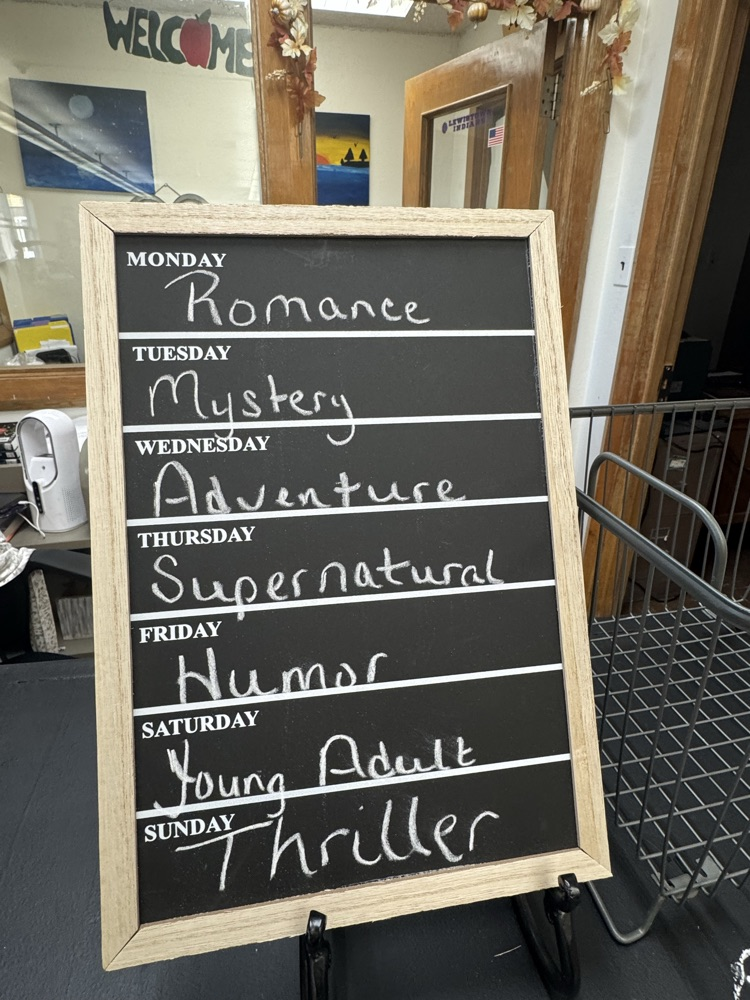 WELCOME
MONDAY
Romance
TUESDAY
Mystery
WEDNESDAY
Adventure
THURSDAY
Supernatural
FRIDAY
Humor
SATURDAY
Young Adult
SUNDAY
Thriller